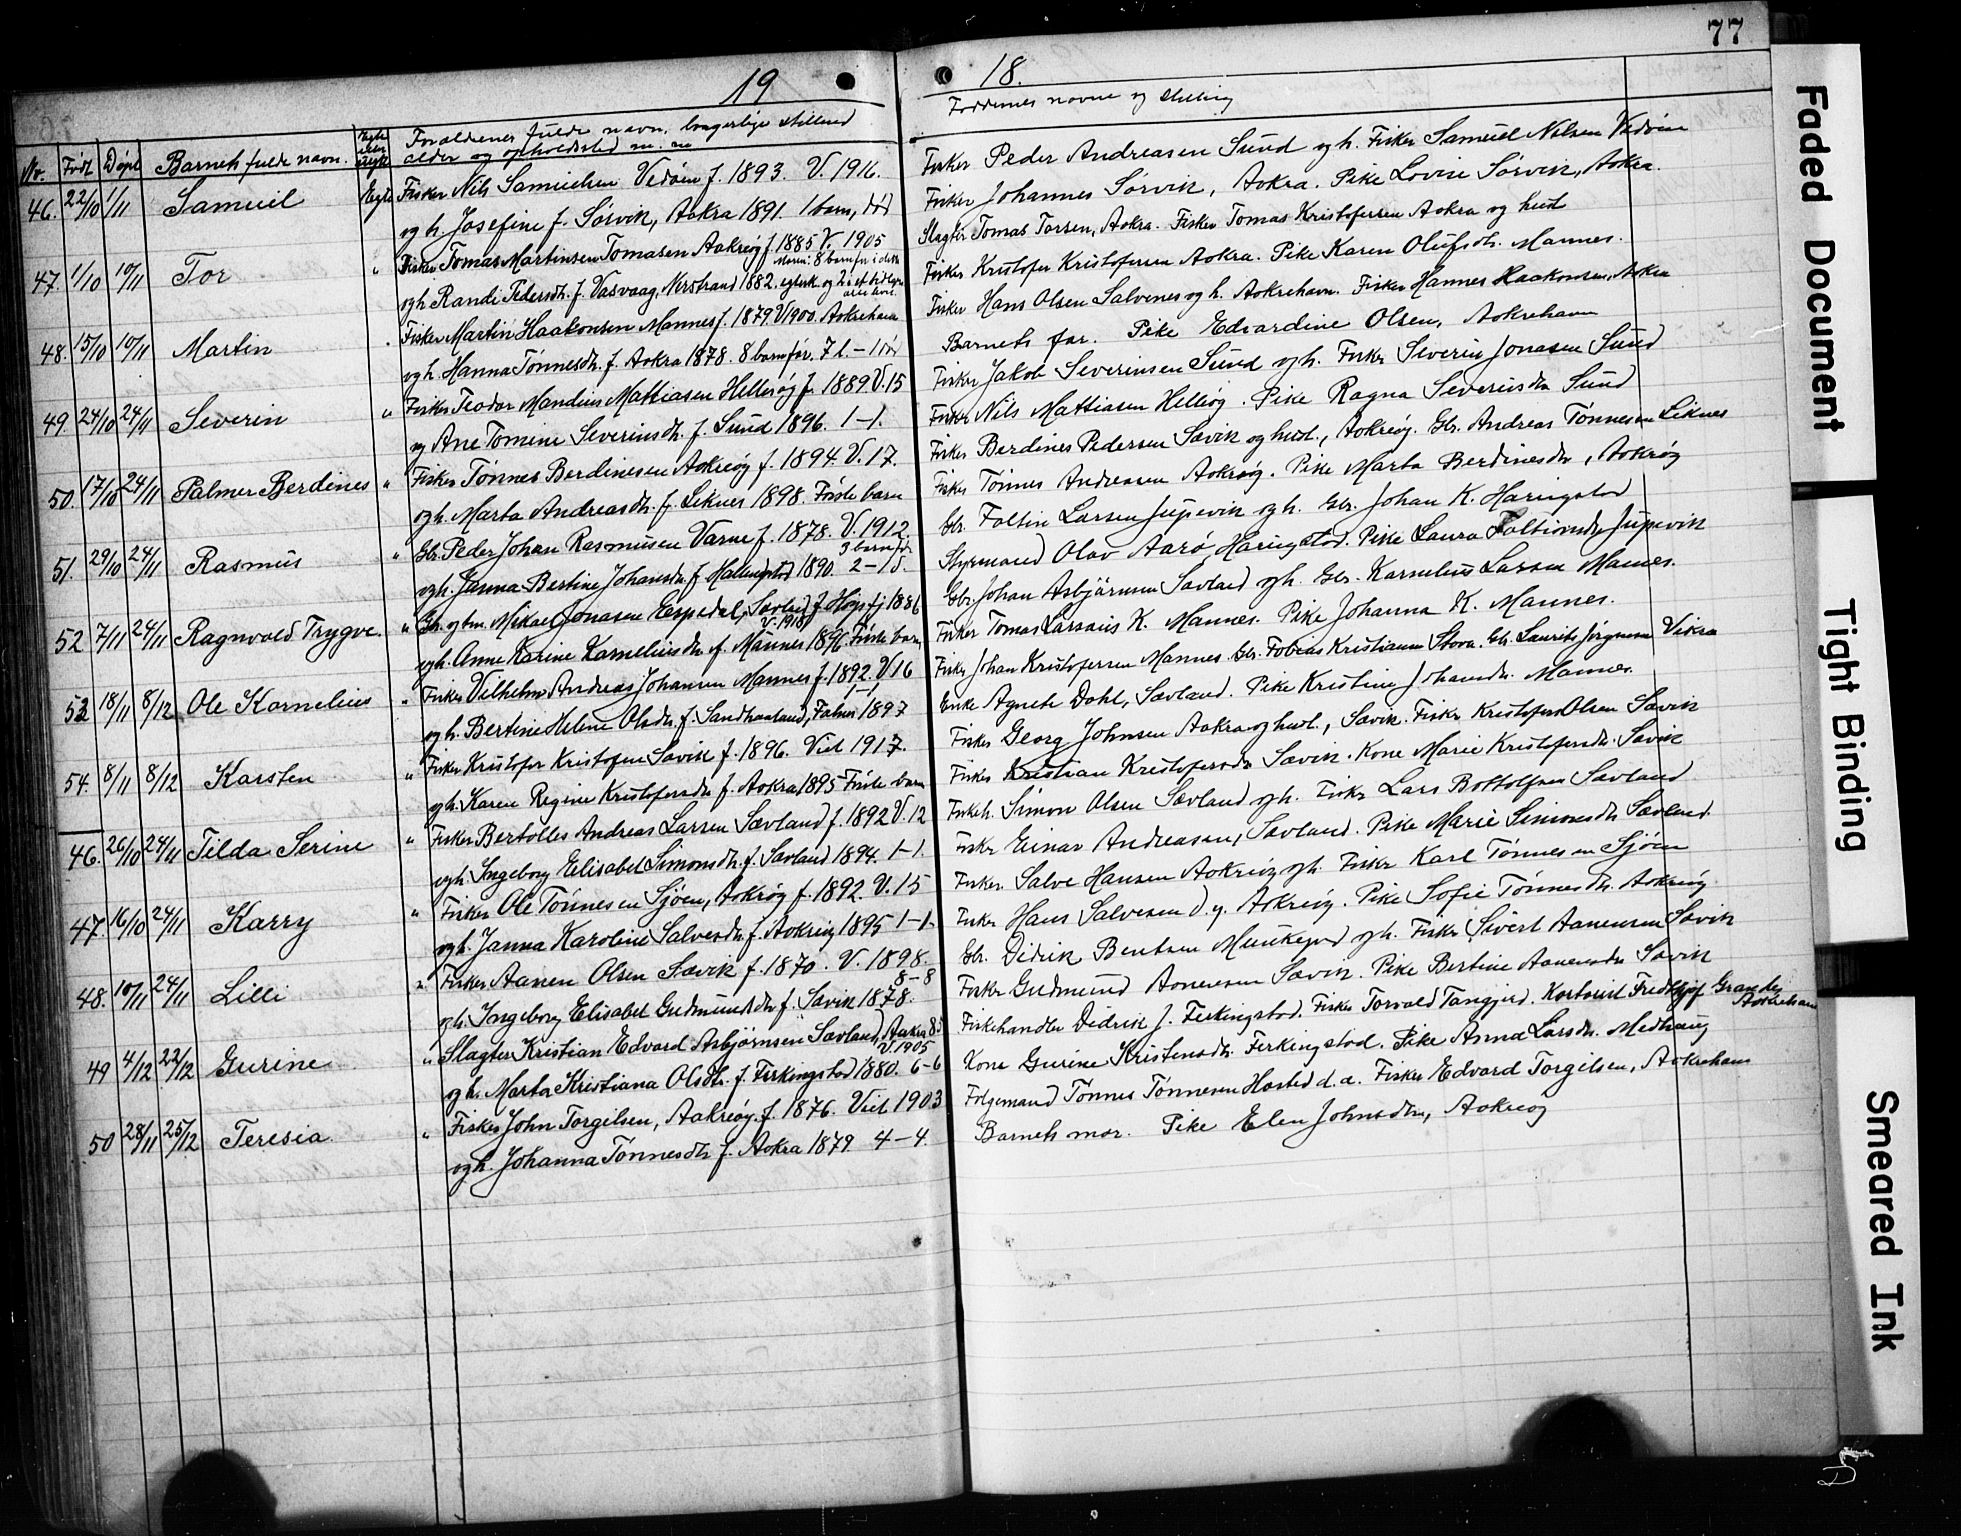 77
19
18.
No. Født Døpt Barnets fulde navn. Forældrenes fulde navn, borgerlige stilling
alder og opholdssted m. m.
Faddernes navne og stilling
46. 22/10 1/11 Samuel Egte Fisker Nils Samuelsen Vedøen f. 1893. V. 1916.
og h. Josefine f. Sørvik, Aakra 1891. 1 barn, død
Fisker Peder Andreasen Sund og h. Fisker Samuel Nilsen Vedøen
Fisker Johannes Sørvik, Aakra. Pike Lovise Sørvik, Aakra.
47. 1/10 10/11 Tor " Fisker Tomas Martinsen Tomasen Aakreøy f. 1885 V. 1905
og h. Randi Pedersdtr. f. Vasvaag, Nerstrand 1882.
Slagter Tomas Torsen, Aakra. Fisker Tomas Kristofersen Aakra og hust
Fisker Kristofer Kristofersen Aakra. Pike Karen Olufsdtr. Mannes.
48. 15/10 10/11 Martin " Fisker Martin Haakonsen Mannes f. 1879. V 1900. Aakrehavn
og h. Hanna Tønnesdtr. f. Aakra 1878. 8 barn før. 7 l. - 1 død
Fisker Hans Olsen Salvenes og h. Aakrehavn. Fisker Hannes Haakonsen, Aakra
Barnets far. Pike Edvardine Olsen, Aakrehavn
49. 24/10 24/11 Severin " Fisker Teodor Mandius Mattiasen Hellesøy f. 1889. V. 15
og Ane Tomine Severinsdtr. f. Sund 1896. 1-1.
Fisker Jakob Severinsen Sund og h. Fisker Severin Jonasen Sund
Fisker Nils Mattiasen Hellesøy. Pike Ragna Severinsdtr Sund
50. 17/10 24/11 Palmer Berdines " Fisker Tønnes Berdinesen Aakreøy f. 1894. V. 17.
og h. Marta Andreasdtr. f. Liknes 1898. Første barn
Fisker Berdines Pedersen Sævik og hust., Aakreøy. Gbr. Andreas Tønnesen Liknes
Fisker Tønnes Andreasen Aakreøy. Pike Marta Berdinesdtr, Aakreøy
51. 29/10 24/11 Rasmus " Gbr. Peder Johan Rasmusen Varne f. 1878. V. 1912.
3 barn før
og h. Janna Bertine Johansdtr. f. 1890. 2-1 d.
Gbr. Foltin Larsen Jupevik og h. Gbr. Johan K. Haringstad
Styrmand Olav Aarø, Haringstad. Pike Laura Foltinsdtr Jupevik
52 7/11 24/11 Ragnvald Trygve " Gbr. og tm. Mikael Jonasen Espedal, Sævland f. Høgsfj 1886
V. 1918
og h. Anne Karine Karneliusdtr. f. Mannes 1896. Første barn
Gbr. Johan Asbjørnsen Sævland og h. Gbr. Karnelius Larsen Mannes.
Fisker Tomas Larsanis K. Mannes. Pike Johanna K. Mannes.
53 18/11 8/12 Ole Kornelius " Fisker Vilhelm Andreas Johansen Mannes f. 1892. V 16
1-1
og h. Bertine Helene Olsdtr. f. Sandhaaland, Falnes 1897
Fisker Johan Kristofersen Mannes. Gbr. Tobias Kristiansen Stova. Gbr. Laurits Jørgensen Vikra
Enke Agnete Dahl, Sævland. Pike Kristine Johansdtr. Mannes.
54. 8/11 8/12 Karsten " Fisker Kristofer Kristofersen Sævik f. 1896. Viet 1917.
og h. Karen Regine Kristofersdtr. f. Aakra 1895 Første barn
Fisker Georg Johnsen Aakra og hust., Sævik. Fisker Kristofer Olsen Sævik
Fisker Kristian Kristofersdtr Sævik. Kone Marie Kristofersdtr. Sævik
46. 26/10 24/11 Tilda Serine " Fisker Bertolles Andreas Larsen Sævland f. 1892 V. 12
og h. Ingeborg Elisabet Simonsdtr. f. Sævland 1894. 1-1.
Fiskeh. Simon Olsen Sævland og h. Fisker Lars Bottolfsen Sævland
Fisker Einar Andreasen, Sævland. Pike Marie Simonsdtr. Sævland.
47. 16/10 24/11 Karry " Fisker Ole Tønnesen Sjøen, Aakreøy f. 1892. V. 15
og h. Janna Karoline Salvesdtr. f. Aakreøy 1895 1-1.
Fisker Salve Hansen Aakreøy og h. Fisker Karl Tønnesen Sjøen
Fisker Hans Salvesen d. y. Aakreøy. Pike Sofie Tønnesdtr. Aakreøy
48. 10/11 24/11 Lilli " Fisker Aanen Olsen Sævik f. 1870. V. 1898.
8-8
og h. Ingeborg Elisabet Gudmundsdtr f. Sævik 1878.
Gbr. Didrik Bentsen Munkejord og h. Fisker Sivert Aanensen Sævik
Fisker Gudmund Aanensen Sævik. Pike Bertine Aanensdtr Sævik
49 4/12 22/12 Gurine " Slagter Kristian Edvard Asbjørnsen Sævland, Aakra
V. 1905
og h. Marta Kristiana Olsdtr. f. Ferkingstad 1880. 6-6
Fiskehandler Dedrik J. Ferkingstad. Fisker Torvald Tangjerd. Kontorist Fredthjof Grandey
Aakrehavn
Kone Gurine Kristensdtr. Ferkingstad. Pike Anna Larsdtr. Medhaug
50 28/11 25/12 Teresia " Fisker John Torgilsen, Aakreøy f. 1876. Viet 1903
og h. Johanna Tønnesdtr f. Aakra 1879 4-4.
Følgemand Tønnes Tønnesen Hasted d. a. Fisker Edvard Torgilsen, Aakrehavn
Barnets mor. Pike Elen Johnsdtr, Aakreøy
Faded Document
Tight Binding
Smeared Ink